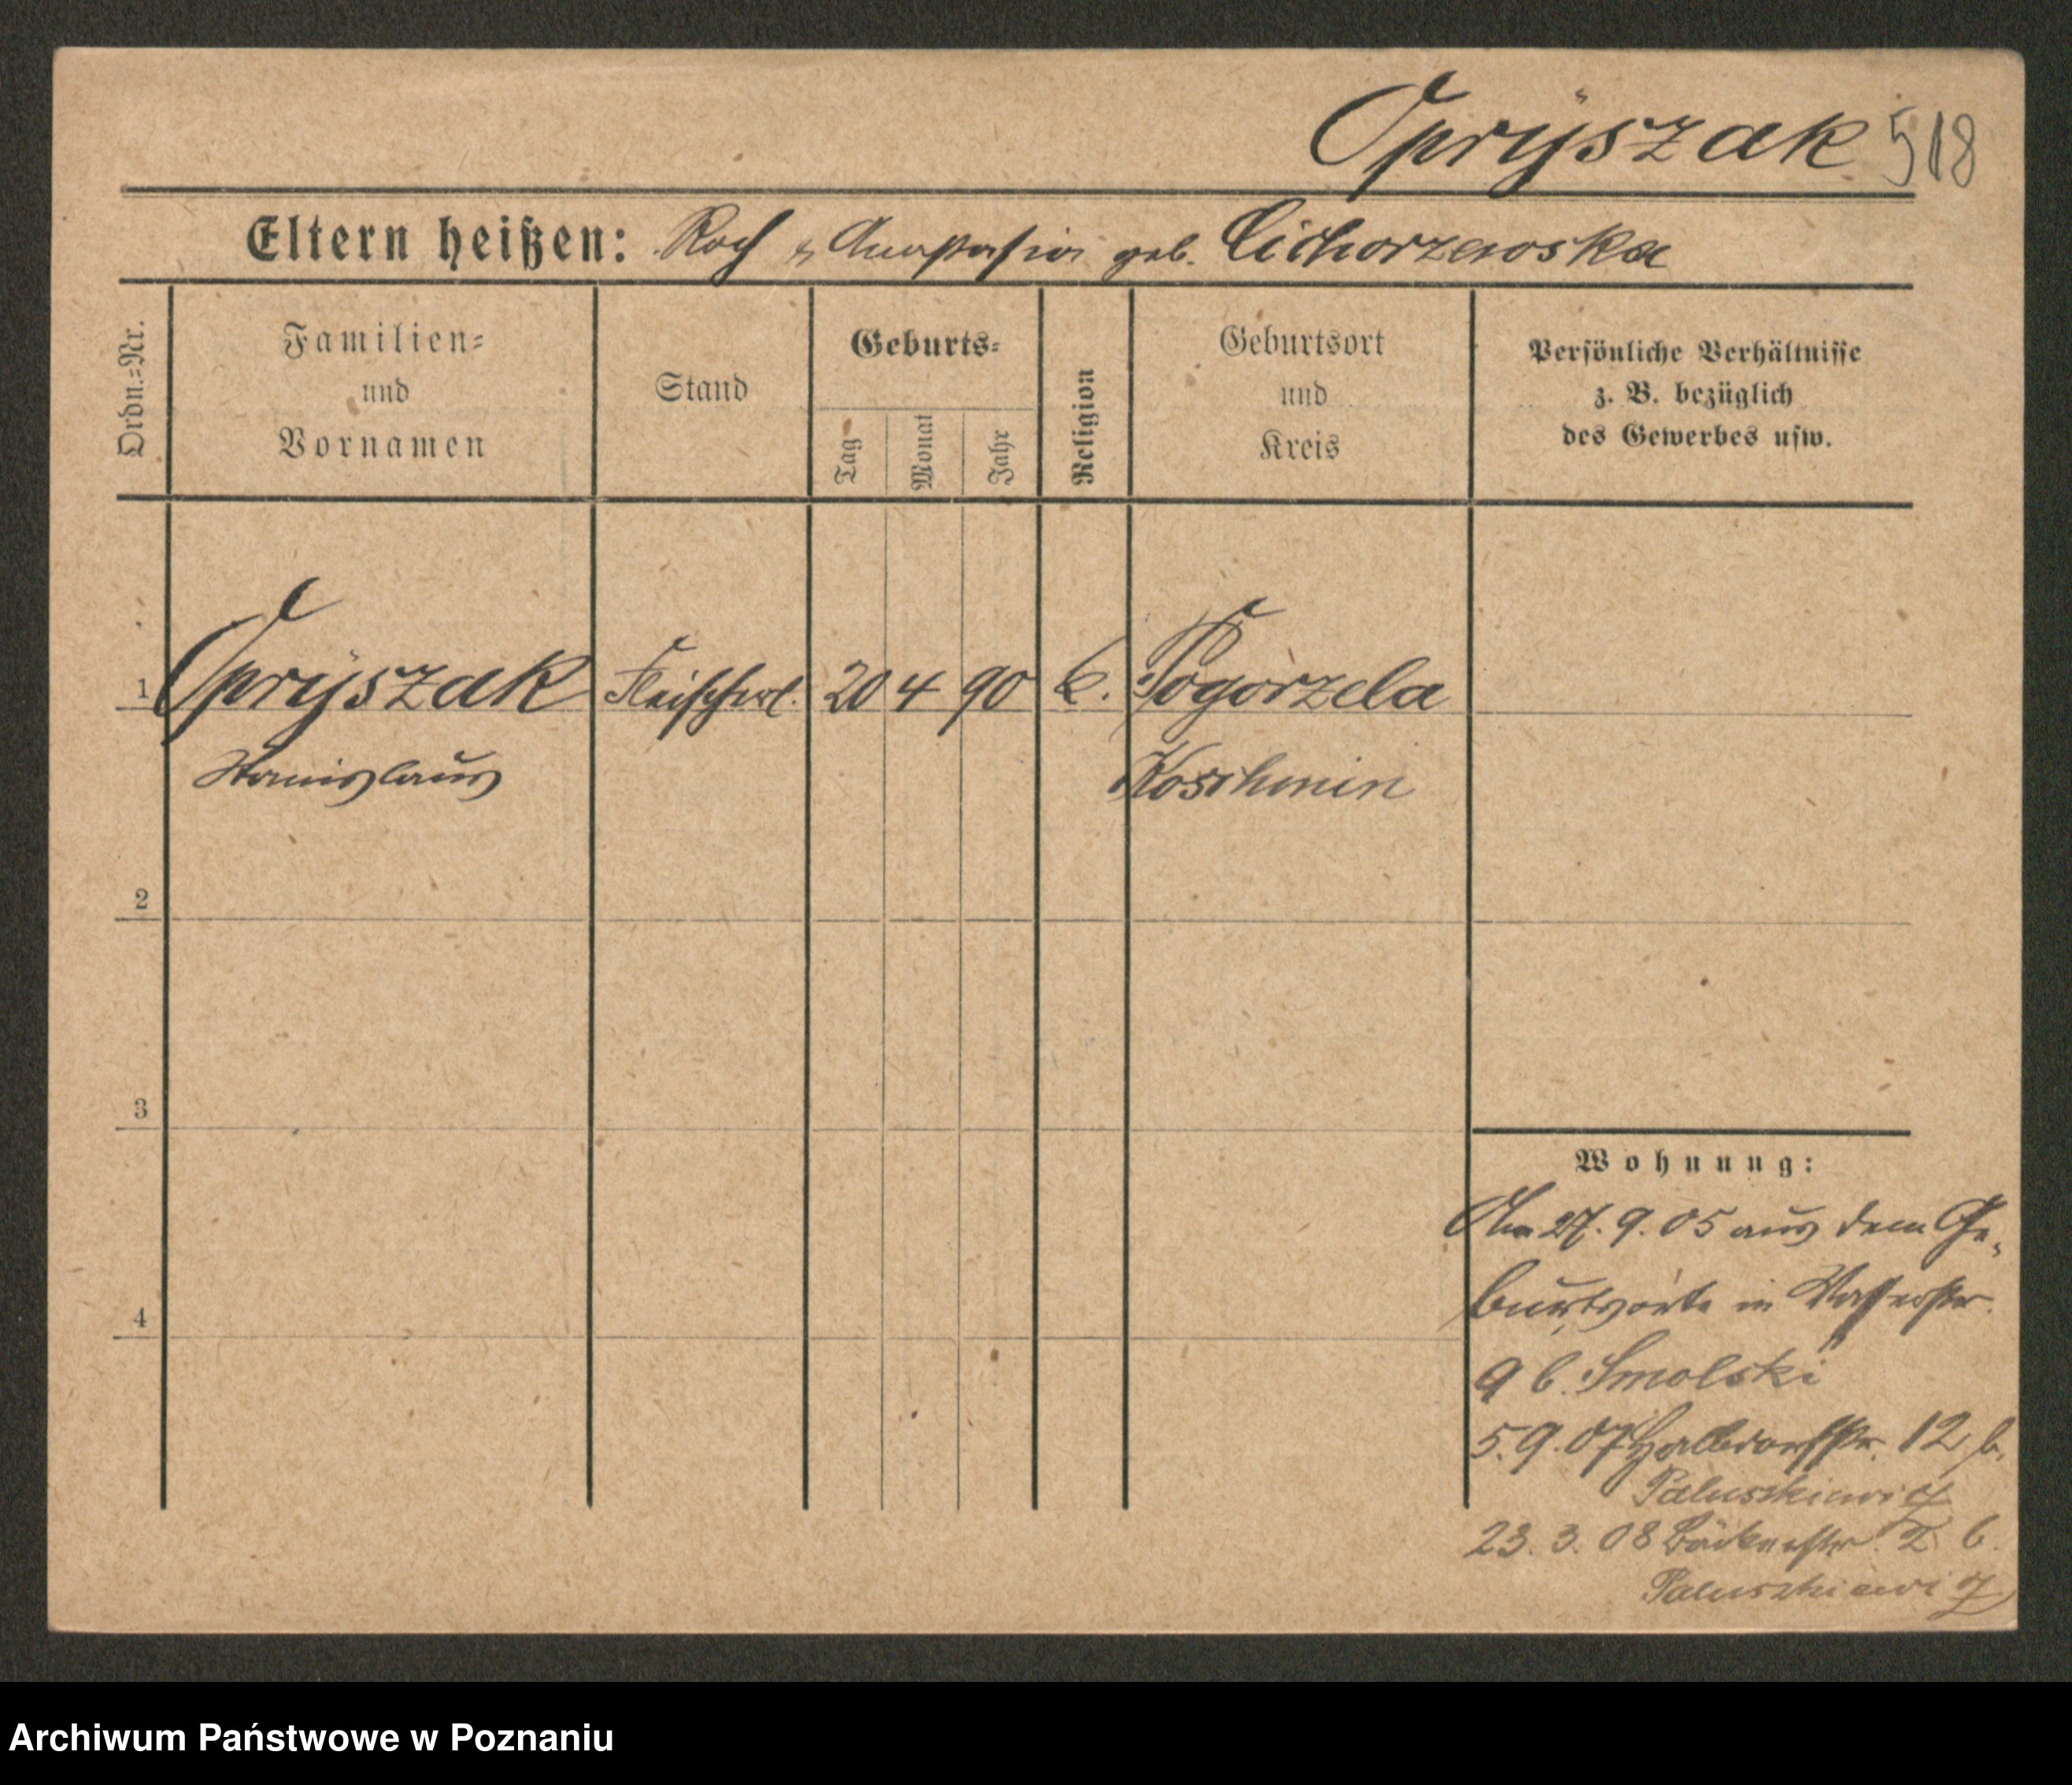 Opryszak 518
Eltern heißen: Roch u. Anastasia geb. Cichorzewska
Ordn.=Nr.
Familien=
und
Vornamen
Stand
Geburts=
Tag
Monat
Jahr
Religion
Geburtsort
und
Kreis
Persönliche Verhältnisse
z. B. bezüglich
des Gewerbes usw.
1 Opryszak Fleischerl. 20 4 90 k. Pogorzela
Stanislaus Koschmin
2
3
4
Wohnung:
Am 27.9.05 aus dem Ge-
burtsorte in Wasserstr.
9 b. Smolski
5.9.07 Halbdorfstr. 12 b.
Paluszkiewicz
23.3.08 Bäckerstr. 2 b.
Paluszkiewicz
Archiwum Państwowe w Poznaniu